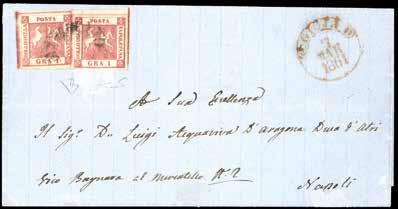 POSTA POSTA
NAPOLETANA
GRA 1 GRA 1
MAR
1861
A Sua Eccellenza
Il Sig.r D. Luigi Acquaviva D'Aragona Duca d'Atri
Vico Bagnara al Mercatello N. 2
Napoli